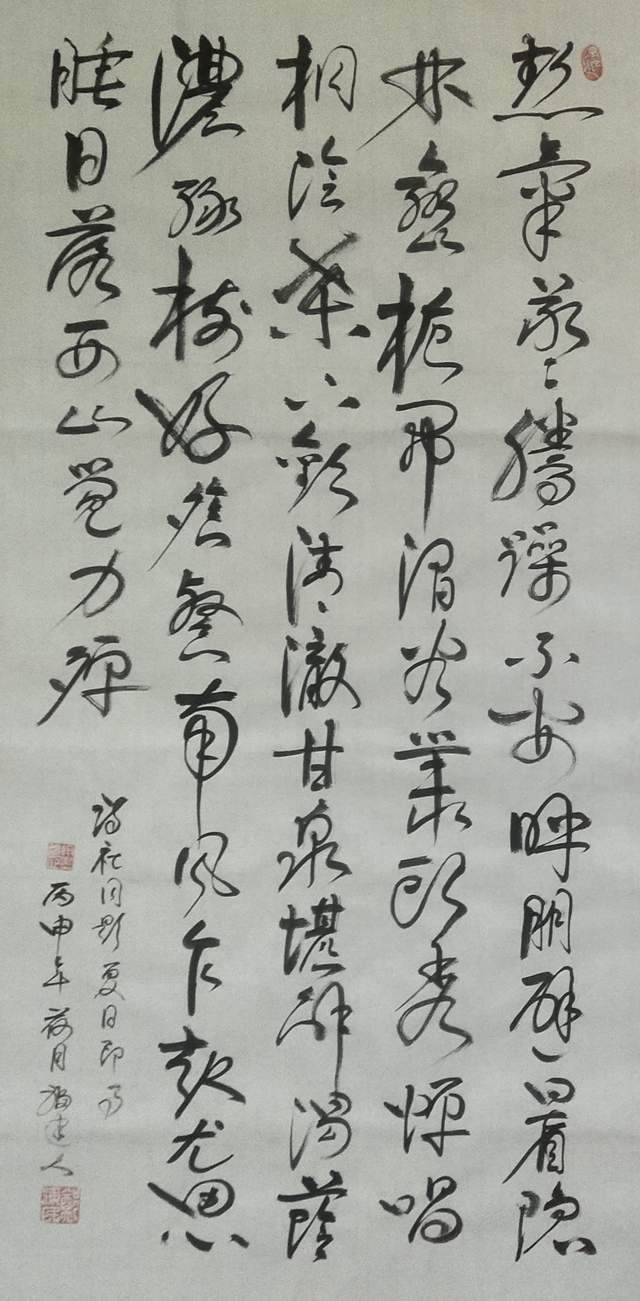 熱氣蒸騰躁不安呼朋避暑隱
林巒栀開澗谷叢頭秀蟬唱
桐陰葉下歡清澈甘泉堪解渴蔭
濃綠樹好餐南風乍起尤思
睡日落西山覺力殫
詩社同題夏日即事
丙申年荷月建人